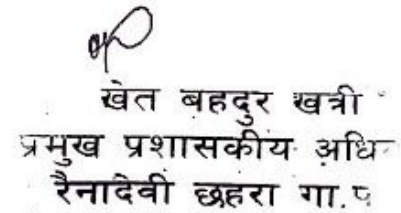 खेत बहदुर खत्री
प्रमुख प्रशासकीय अधि
रैनादेवी छहरा गा.प